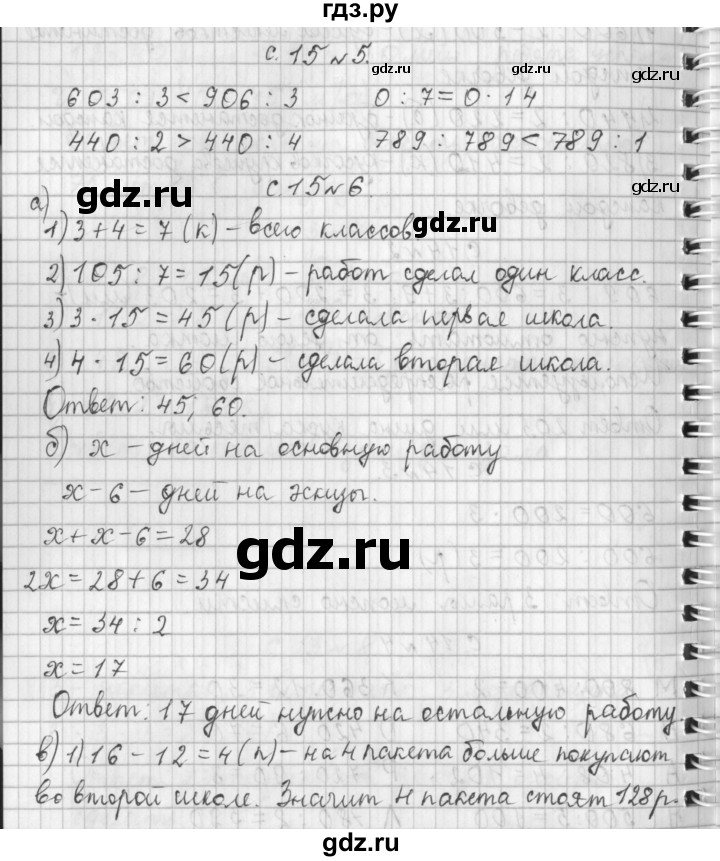 гдз.ру
с. 15 № 5.
gdz.ru
603 : 3 < 906 : 3   0 : 7 = 0 · 14
440 : 2 > 440 : 4   789 : 789 < 789 : 1
gdz.ru
gdz.ru
с. 15 № 6
gdz.ru
а)
1) 3 + 4 = 7 (к) – всего классов
gdz.ru
2) 105 : 7 = 15 (р) – работ сделал один класс.
3) 3 · 15 = 45 (р) – сделала первая школа.
4) 4 · 15 = 60 (р) – сделала вторая школа.
Ответ: 45; 60.
б) х – дней на основную работу
х – 6 – дней на эскизы.
х + х – 6 = 28
gdz.ru
2х = 28 + 6 = 34
х = 34 : 2
х = 17
Ответ: 17 дней нужно на остальную работу.
в) 1) 16 – 12 = 4 (п) – на 4 пакета больше покупают
во второй школе. Значит 4 пакета стоят 128 р.
gdz.ru
gdz.ru
gdz.ru